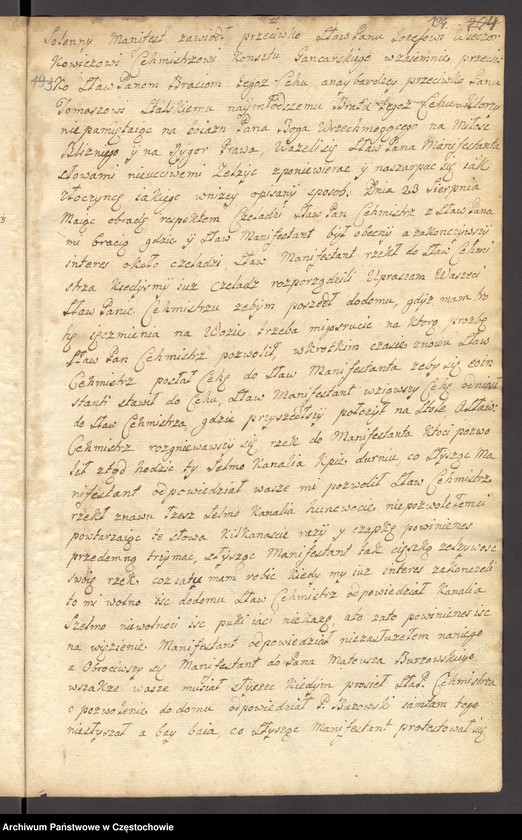 194. 204
Solenny Manifest zawiódł przeciwko Sław Panu Iozefowi Wieczor
Kowiczowi Cehmistrzowi Konsztu Gancarskiego wzaiemnie przeciw
193 ko Sław Panom Braciom tegoż Cehu a naybardziey przeciwko Panu
Tomaszowi Stalskiemu naymłodszemu Bratu tegoż Cehu Ktorzy
nie pamiętaiąc na Boiazn Pana Boga Wszechmogącego na Miłość
Blizniego y na Rygor Prawa, Ważyli się Sław Pana Manifestanta
słowami nieuczciwemi Zelżyć zponiewierać y naszarpać się iak
złoczyncę iakiego wnizey opisany sposob. Dnia 23 Sierpnia
Maiąc obradę respektem Czeladzi Sław Pan Cehmistrz z Sław Pana
mi bracią gdzie y Sław Manifestant był obecny a zakonczywszy
interes około czeladzi Sław Manifestant rzekł do Sław Cehmi
strza Kiedysmy iuz czeladz rozporządzili Upraszam Waszeci
Sław Panie Cehmistrzu zebym poszedł do domu, gdyż mam tro
hę ięczmienia na Wozie trzeba na ktorą prozbę
Sław Pan Cehmistrz pozwolił, wkrotkim czasie znowu Sław
Cehmistrz posłał Cehę do Sław Manifestanta zeby się eoin
stanti stawił do Cehu, Sław Manifestant wziowszy Cehę
do Sław Cehmistrza gdzie przyszedłszy położył na Stole A Sław:
Cehmistrz rozgniewawszy się rzek do Manifestanta Ktoci pozwo
lił ztąd hodzić ty Selmo Kanalia Kpie durniu co słysząc Ma
nifestant odpowiedział wasze mi pozwolił Sław Cehmistrz
rzekł znawu łzesz Selmo Kanalia huncwocie niepozwolełemci
powtarzaiąc te słowa Kilkanascie razy y czapkę powinienes
przedemną trzymac, słysząc Manifestant tak cięszką zelzywosć
swoię rzek coz ia tu mam robić kiedy my iuz interes zakonczeli
to mi wolno iść do domu Sław Cehmistrz odpowiedział Kanalia
Szelmo niewolnoci iść puki iaci niekażę, ale zato powinienes iść
na więzienie Manifestant odpowiedział niezasłuzełem na nego
a Obrociwszy się Manifestant do Pana Mateusza Burzowskiego
wszakze wasze musiał słyszec kiedym prosieł Sław P. Cehmistrza
o pozwolenie do domu odpowiedział P. Buzowski samsam tego
niesłyszał a bay baia, co słysząc Manifestant protestował się
Archiwum Państwowe w Częstochowie